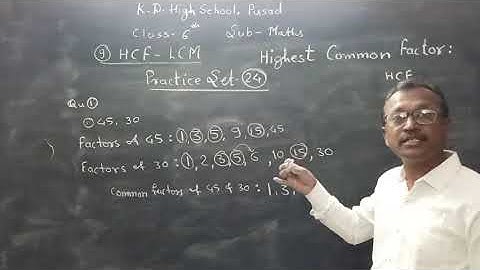 K.D. High School, Pusad
Class- 6th Sub- Maths
⑨ HCF-LCM Highest Common factor:
Practice Set 24 HCF
Qu ①
① 45, 30
Factors of 45 : 1, 3, 5, 9, 15, 45
Factors of 30 : 1, 2, 3, 5, 6, 10, 15, 30
Common factors of 45 & 30 : 1, 3,